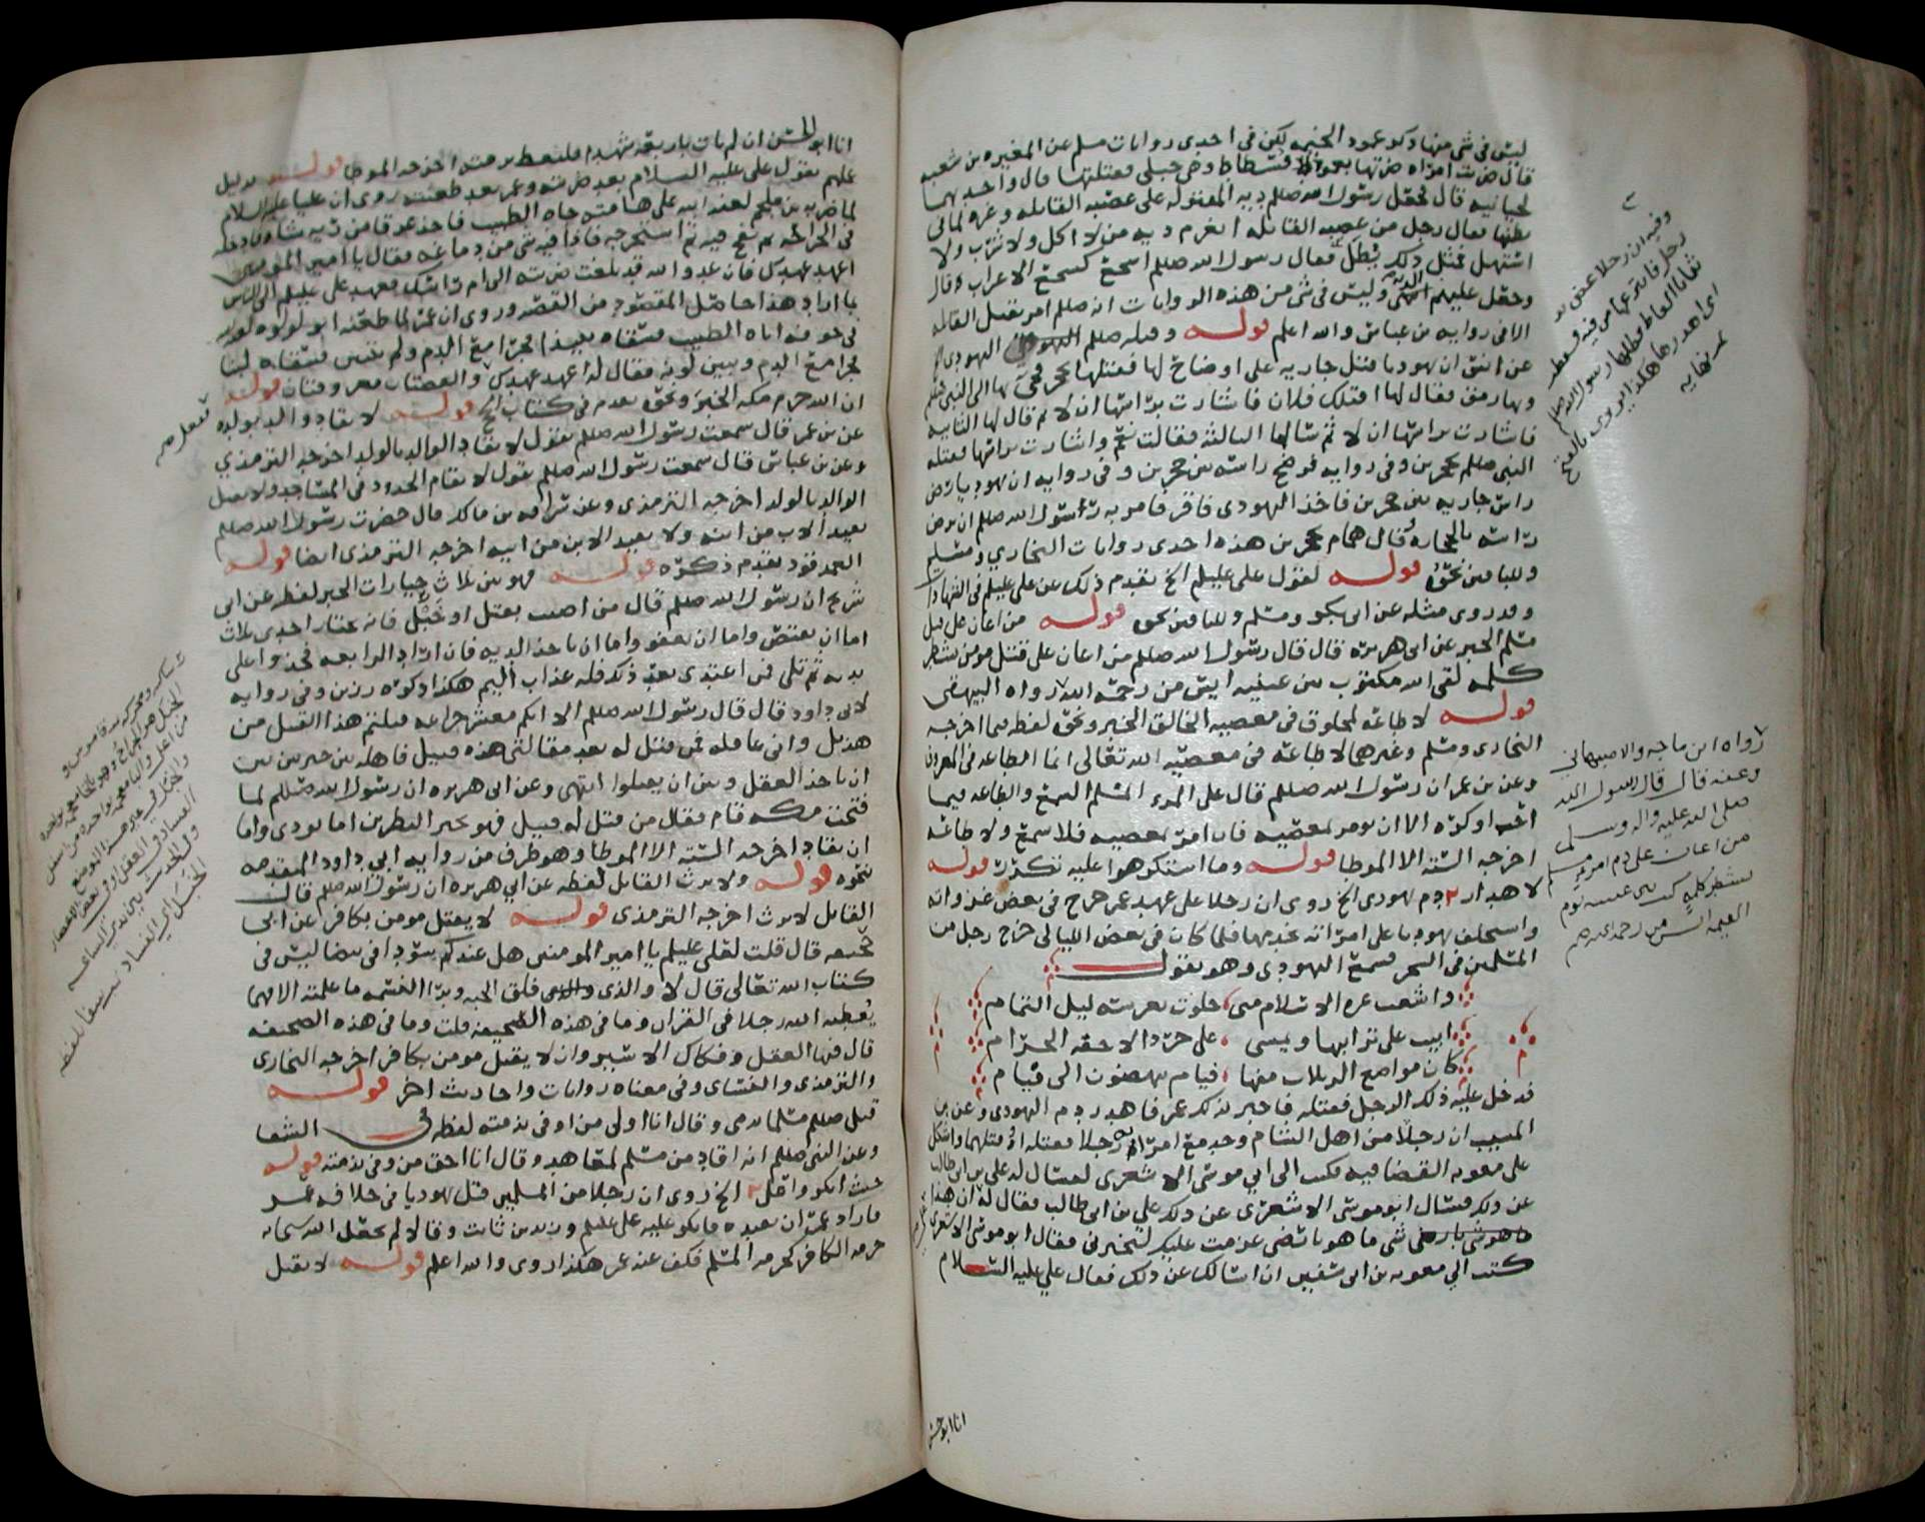 ليس في شي منها ذكر عمود الخيمه لكن في احدى روايات مسلم عن المغيره بن شعبه
قال ضربت امراه ضرتها بعمود فسطاط وهي حبلى فقتلتها قال واحديهما
لحيانيه قال فجعل رسول الله صللم ديه المقتوله على عصبه القاتله وغره لما في
بطنها فقال رجل من عصبه القاتله انغرم ديه من لا اكل ولا شرب ولا
استهل فمثل ذلك يطل فقال رسول الله صللم اسجع كسجع الاعراب قال
وجعل عليهم الديه انتهى وليس في شي من هذه الروايات انه صللم امر بقتل القاتله
الا في روايه بن عباس والله اعلم قوله وقتله صللم اليهودي
عن انس ان يهوديا قتل جاريه على اوضاح لها فقتلها بحجر فجيء بها الى النبي صللم
وبها رمق فقال لها اقتلك فلان فاشارت براسها ان لا ثم قال لها الثانيه
فاشارت براسها ان لا ثم سالها الثالثه فقالت نعم واشارت براسها فقتله
النبي صللم بحجرين وفي روايه فرضخ راسه بين حجرين وفي روايه ان يهوديا رض
راس جاريه بين حجرين فاخذ اليهودي فاقر فامر به رسول الله صللم ان يرض
راسه بالحجاره وقال همام بحجرين هذه احدى روايات البخاري ومسلم
وللباقين نحوه قوله لقول علي عليلم الخ تقدم ذلك عن علي عليلم في الشهادات
وقد روى مثله عن ابي بكر ومسلم وللباقين نحوه قوله من اعان على قتل
مسلم الخبر عن ابي هريره قال قال رسول الله صللم من اعان على قتل مومن بشطر
كلمه لقي الله مكتوب بين عينيه ايس من رحمة الله رواه البيهقي
قوله لا طاعه لمخلوق في معصيه الخالق الخبر ونحوه لفظه فيما اخرجه
البخاري ومسلم وغيرهما لا طاعه في معصيه الله تعالى انما الطاعه في المعروف
وعن بن عمر ان رسول الله صللم قال على المرء المسلم السمع والطاعه فيما
احب او كره الا ان يومر بمعصيه فان امر بمعصيه فلا سمع ولا طاعه
اخرجه السته الا الموطا قوله وما استكرهوا عليه تكررت قوله
لاهدار دم يهودي الخ روي ان رجلا على عهد عمر خرج في بعض غزواته
واستخلف يهوديا على امراته يخدمها فلما كان في بعض الليالي خرج رجل من
المسلمين في السحر فسمع اليهودي وهو يقول
واشعث غره الاسلام مني خلوت بعرسه ليل التمام
ابيت على ترايبها ويمسي على جردا لاحقه الحزام
كان مواضع الربلات منها فيام ينهضون الى فيام
فدخل عليه ذلك الرجل فقتله فاخبر بذلك عمر فاهدر دم اليهودي وعن بن
المسيب ان رجلا من اهل الشام وجد مع امراته رجلا فقتله او قتلهما واشكل
على معويه القضا فيه فكتب الى ابي موسى الاشعري ليسال له علي بن ابي طالب
عن ذلك فسال ابو موسى الاشعري عن ذلك علي بن ابي طالب فقال له ان هذا
شي ما هو بارضي عزمت عليك لتخبرني فقال ابو موسى الاشعري
كتب الي معويه بن ابي سفين ان اسالك عن ذلك فقال علي عليه السلام
انا ابو حسن
رواه ابن ماجه والاصبهاني
وعنه قال قال رسول الله
صلى الله عليه واله وسلم
من اعان على دم امرء مسلم
بشطر كلمه كتب بين عينيه يوم
القيمه ايس من رحمة الله
وفيه ان رجلا عض يد
رجل فانتزعها من فيه فسقطت
ثنايا العاض فطلها رسول الله صلعم
اي اهدرها هكذا يروى بالفتح
نهايه
انا ابو الحسن ان لم يات باربعه شهدا فليعط برمته اخرجه الموطا قوله بدليل
عملهم بقول علي عليه السلام بعد ضربته وعمر بعد طعنته روي ان عليا عليه السلام
لما ضربه بن ملجم لعنه الله على هامته جاه الطبيب فاخذ عرقا من ريه شاه فادخله
في الجراحه ثم نفخ فيه ثم استخرجه فاذا فيه شي من دماغه فقال يا امير المومنين
اعهد عهدك فان عدو الله قد بلغت ضربته الى ام راسك فعهد علي عليلم الى الناس
بما اراد هذا حاصل المقصود من القصه وروي ان عمر لما طعنه ابو لولوه
في جوفه اتاه الطبيب فسقاه نبيذا فخرج مع الدم ولم يتبين فسقاه لبنا
فخرج مع الدم وتبين لونه فقال له اعهد عهدك والقصتان معروفتان قوله
ان الله حرم مكه الخبر ونحوه تقدم في كتاب الحج قوله لا يقاد والد بولده
عن بن عمر قال سمعت رسول الله صللم يقول لا يقاد الوالد بالولد اخرجه الترمذي
وعن بن عباس قال سمعت رسول الله صللم يقول لا تقام الحدود في المساجد ولا يقتل
الوالد بالولد اخرجه الترمذي وعن سراقه بن مالك قال حضرت رسول الله صللم
يقيد الاب من ابنه ولا يقيد الابن من ابيه اخرجه الترمذي ايضا قوله
العمد قود تقدم ذكره قوله فهو بين ثلاث خيارات الخبر لفظه عن ابي
شريح ان رسول الله صللم قال من اصيب بقتل او خبل فانه يختار احدى ثلاث
اما ان يقتص واما ان يعفو واما ان ياخذ الديه فان اراد الرابعه فخذوا على
يديه ثم تلى فمن اعتدى بعد ذلك فله عذاب اليم هكذا ذكره رزين وفي روايه
لابي داود قال قال رسول الله صللم الا انكم معشر خزاعه قتلتم هذا القتيل من
هذيل واني عاقله فمن قتل له بعد مقالتي هذه قتيل فاهله بين خيرتين بين
ان ياخذ العقل وبين ان يقتلوا انتهى وعن ابي هريره ان رسول الله صللم لما
فتحت مكه قام فقال من قتل له قتيل فهو بخير النظرين اما يودي واما
ان يقاد اخرجه السته الا الموطا وهو طرف من روايه ابي داود المتقدمه
نحوه قوله ولا يرث القاتل لفظه عن ابي هريره ان رسول الله صللم قال
القاتل لا يرث اخرجه الترمذي قوله لا يقتل مومن بكافر عن ابي
جحيفه قال قلت لعلي عليلم يا امير المومنين هل عندكم سودا في بيضا ليس في
كتاب الله تعالى قال لا والذي فلق الحبه وبرا النسمه ما علمته الا فهما
يعطيه الله رجلا في القران وما في هذه الصحيفه قلت وما في هذه الصحيفه
قال فيها العقل وفكاك الاسير وان لا يقتل مومن بكافر اخرجه البخاري
والترمذي والنسائ وفي معناه روايات واحاديث اخر قوله
قتل صللم مسلما بذمي وقال انا اولى من اوفى بذمته لفظه في الشفا
وعن النبي صللم انه اقاد من مسلم لمعاهد وقال انا احق من وفى بذمته قوله
حيث انكر واقل الخ روي ان رجلا من المسلمين قتل يهوديا في خلافه عمر
فاراد عمر ان يقيده فانكر عليه علي عليلم وزيد بن ثابت وقالا لم يجعل الله سبحانه
حرمه الكافر كحرمه المسلم فكف عنه عمر هكذا روي والله اعلم قوله لا يقتل